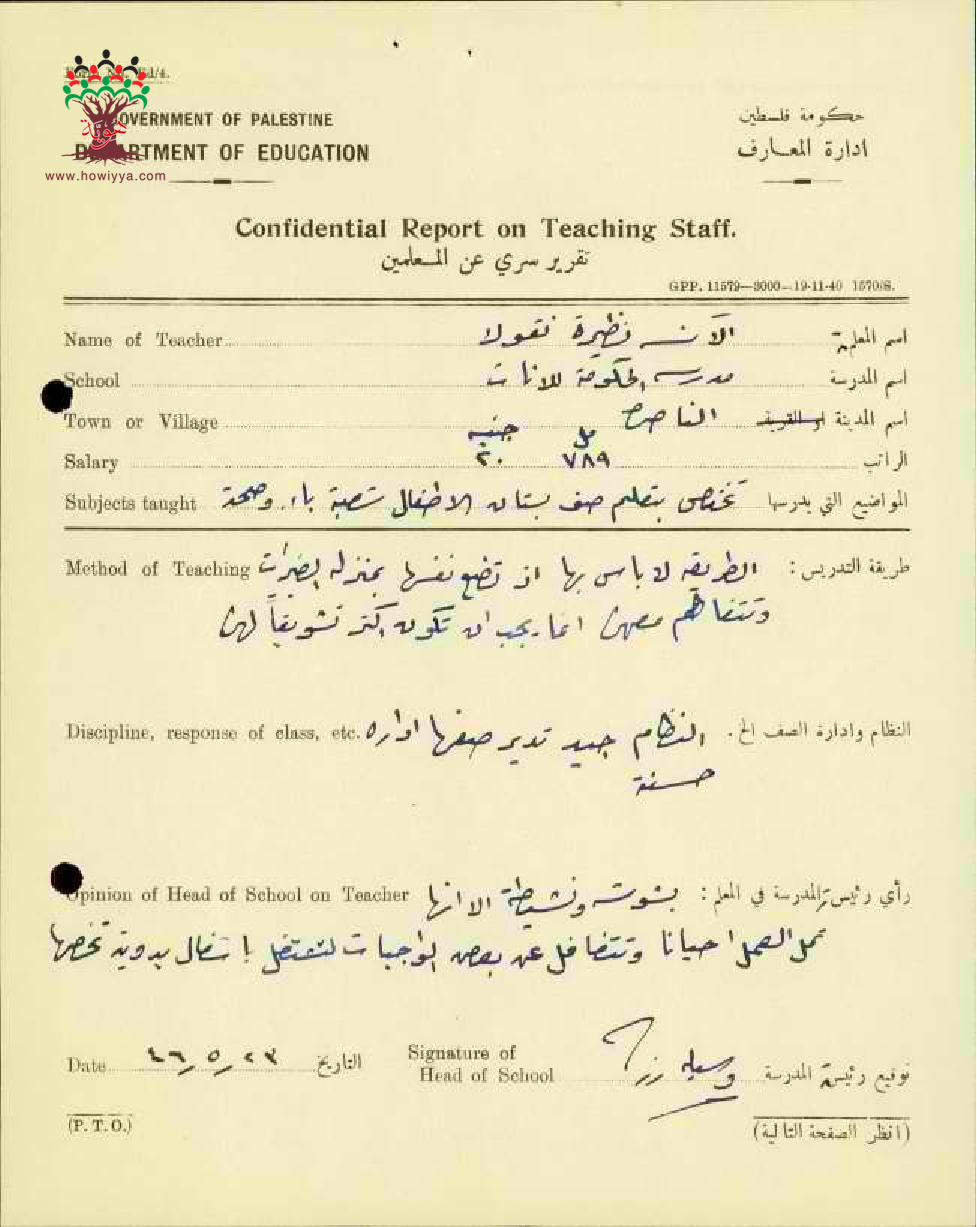 Form No. Ed/4.
www.howiyya.com
GOVERNMENT OF PALESTINE
DEPARTMENT OF EDUCATION
حكومة فلسطين
ادارة المعارف
Confidential Report on Teaching Staff.
تقرير سري عن المعلمين
GPP. 11579—3000—19-11-40 1570/S.
Name of Teacher الآنسة نظيرة نقولا اسم المعلمة
School مدرسة الحكومة للاناث اسم المدرسة
Town or Village الناصرة اسم المدينة او القرية
مل جنيه
Salary ٧٨٩ ٢٠ الراتب
Subjects taught تختص بتعليم صف بستان الاطفال شعبة باء. وصحة المواضيع التي يدرسها
Method of Teaching الطريقة لا باس بها اذ تضع نفسها بمنزلة الصغيرات طريقة التدريس:
وتتفاهم معهن انما يجب ان تكون اكثر تشويقاً لهن
Discipline, response of class, etc. النظام جيد تدير صفها اداره النظام وادارة الصف الخ.
حسنة
Opinion of Head of School on Teacher بشوشة ونشيطة الا انها رأي رئيسة المدرسة في المعلم:
تمل العمل احيانا وتتغافل عن بعض الواجبات لتشتغل باشغال يدوية تخصها
Date ٢٣/٥/٤٦ التاريخ
Signature of
Head of School وسيله توقيع رئيسة المدرسة
(P. T. O.)
(انظر الصفحة التالية)